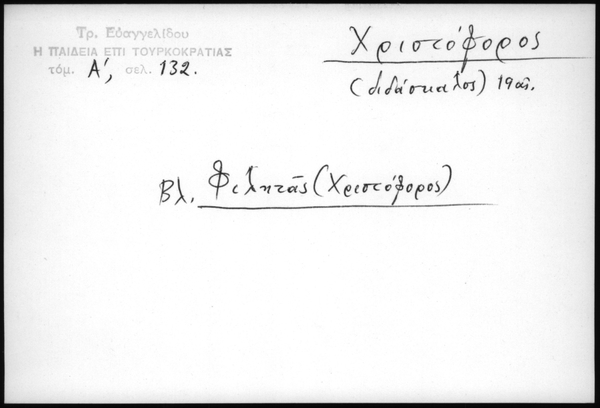 Τρ. Εὐαγγελίδου
Η ΠΑΙΔΕΙΑ ΕΠΙ ΤΟΥΡΚΟΚΡΑΤΙΑΣ
τόμ. Α΄, σελ. 132.
Χριστόφορος
(διδάσκαλος) 19 αἰ.
Βλ. Φιλητᾶς (Χριστόφορος)